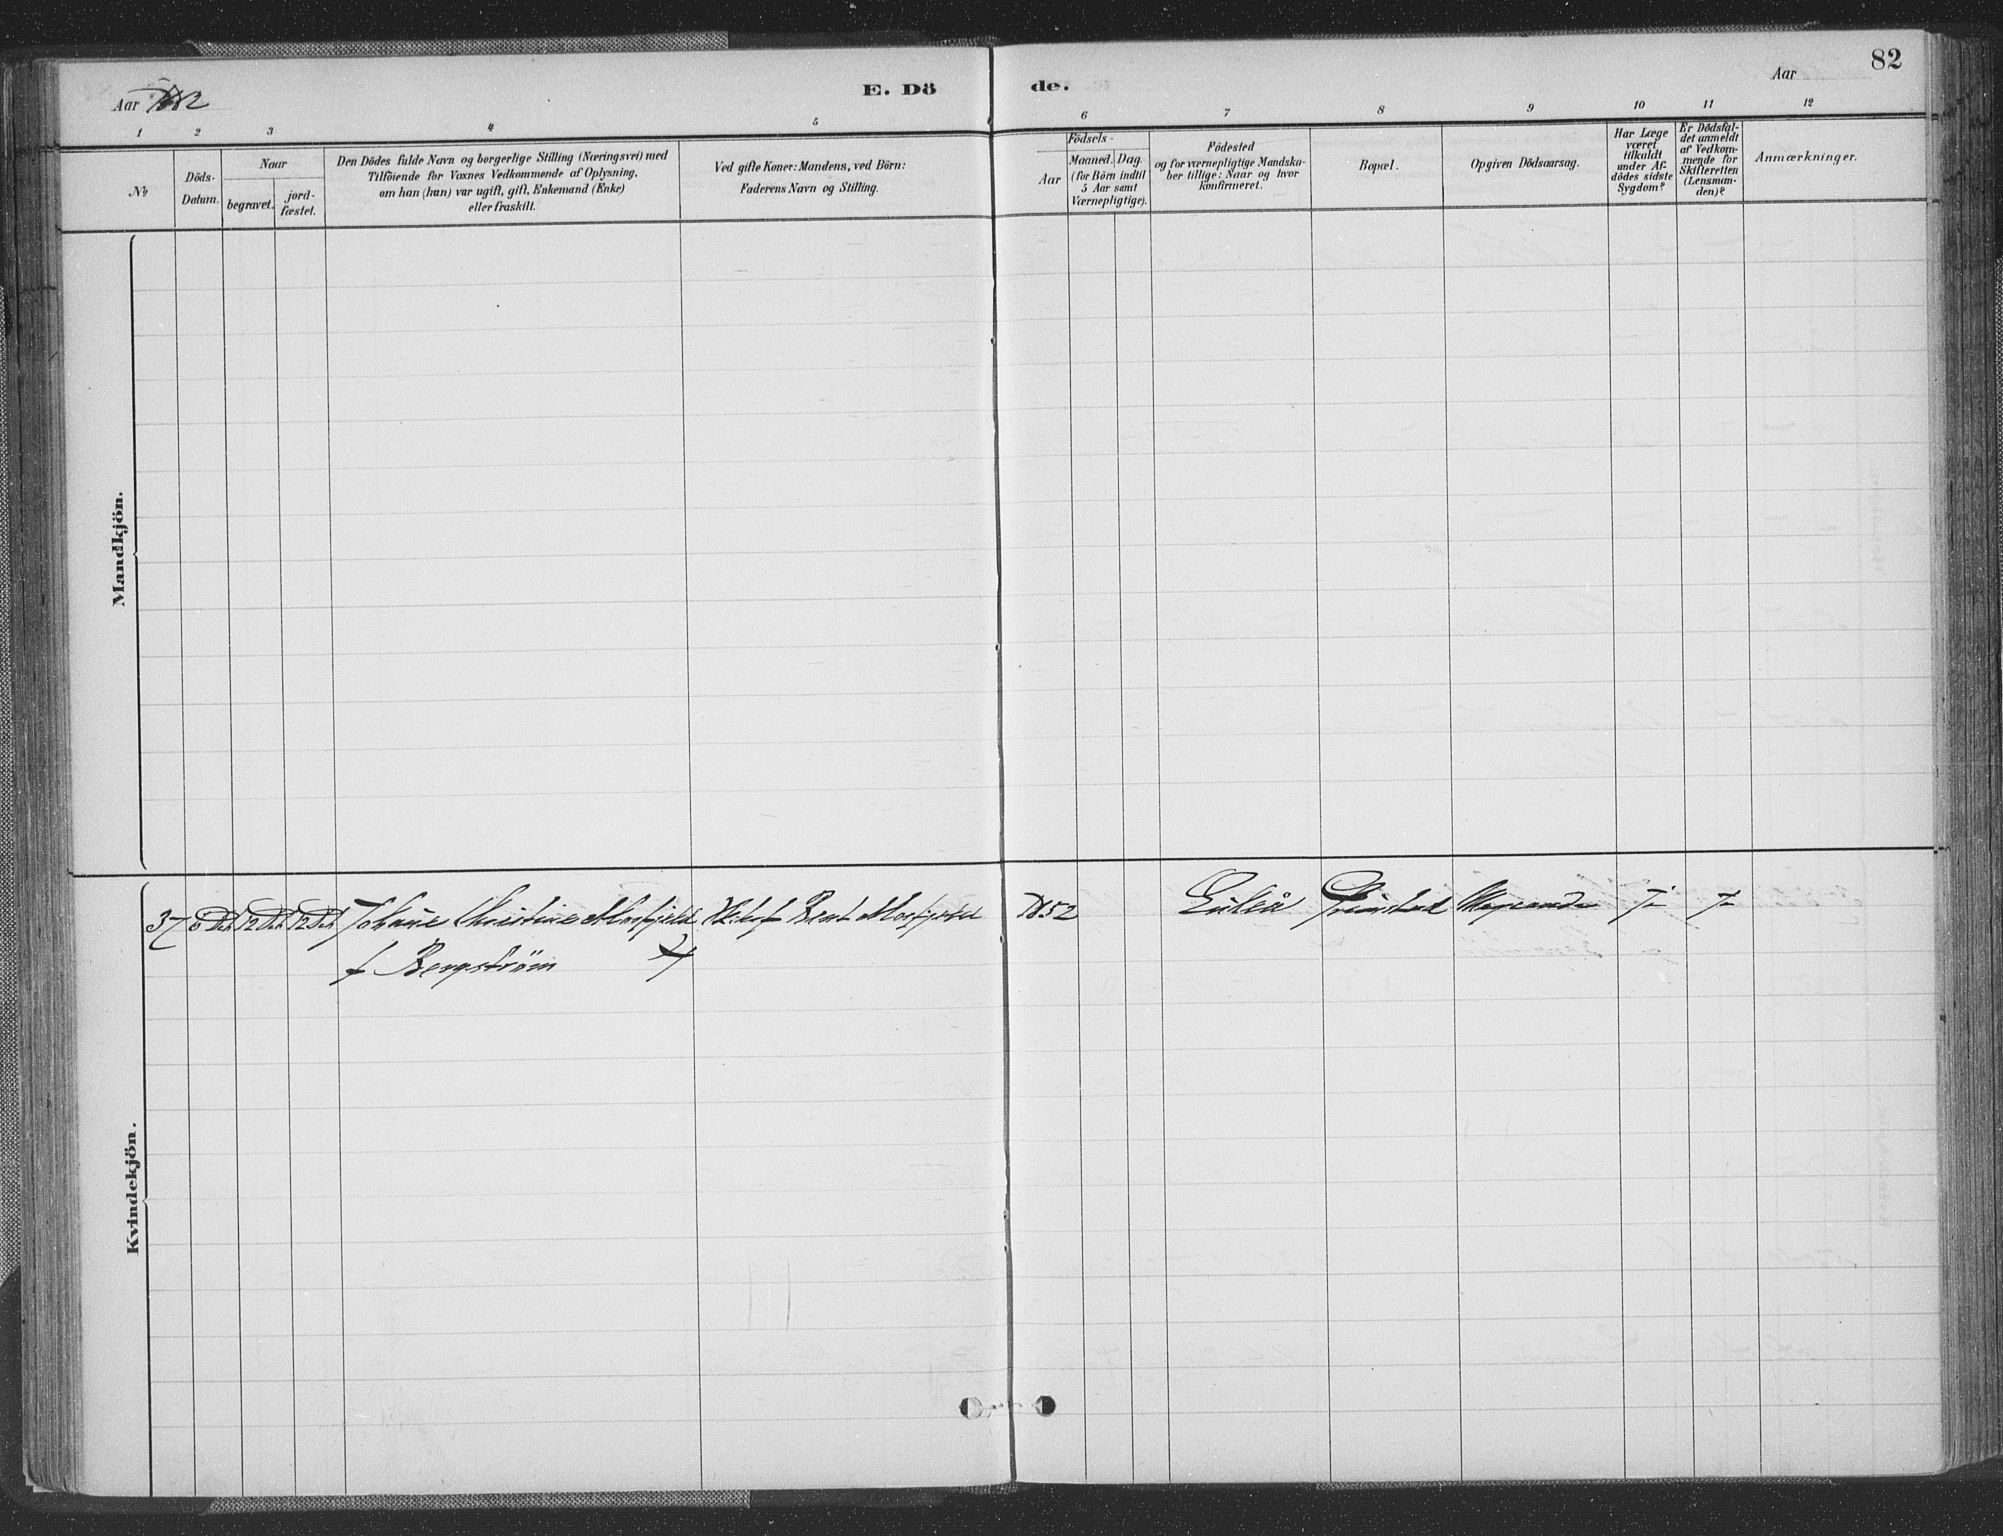 82
Aar
E. Dö de.
Aar
1 2 3 4 5 6 7 8 9 10 11 12
No
Döds-
Datum.
Naar
begravet.
jord-
fæstet.
Den Dödes fulde Navn og borgerlige Stilling (Næringsvei) med
Tilföiende for Voxnes Vedkommende af Oplysning,
om han (hun) var ugift, gift, Enkemand (Enke)
eller fraskilt.
Ved gifte Koner: Mandens, ved Börn:
Faderens Navn og Stilling.
Födsels-
Aar
Maaned. Dag.
(for Börn indtil
5 Aar samt
Værnepligtige).
Födested
og for værnepligtige Mandska-
ber tillige: Naar og hvor
konfirmeret.
Bopæl.
Opgiven Dödsaarsag.
Har Læge
været
tilkaldt
under Af-
dödes sidste
Sygdom?
Er Dödsfal-
det anmeldt
af Vedkom-
mende for
Skifteretten
(Lensman-
den)?
Anmærkninger.
Mandkjön.
37 6 Dec 12 Dec 12 Dec Johanne Christine Morfjeld Bent Morfjeld 1852 Grimstad
f Bergström
Kvindekjön.